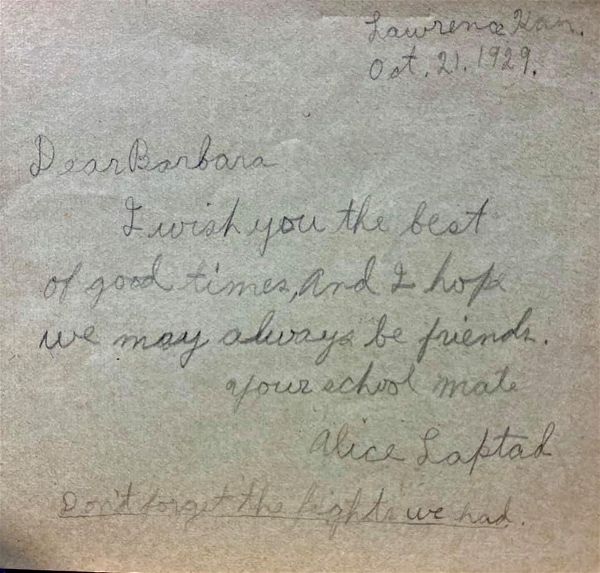 Lawrence Kan.
Oct. 21. 1929.
Dear Barbara
I wish you the best
of good times, And I hope
we may always be friends.
your school mate
Alice Laptad
Don't forget the fights we had.